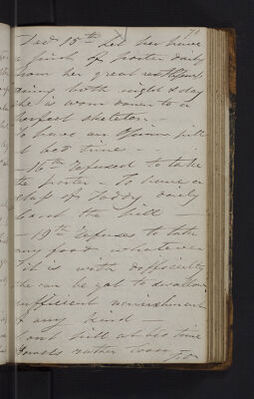 15th Let her have
a pint of porter daily
from her great restlessness
being both night & day
she is worn down to a
perfect skeleton -
To have an Opium pill
at bed time -
- 16th Refused to take
the porter - To have a
of Toddy daily
the pill -
- 19th Refuses to take
any food whatever
it is with difficulty
she can be got to swallow
sufficient nourishment
of any kind
pill at bed time
Bowels rather loose